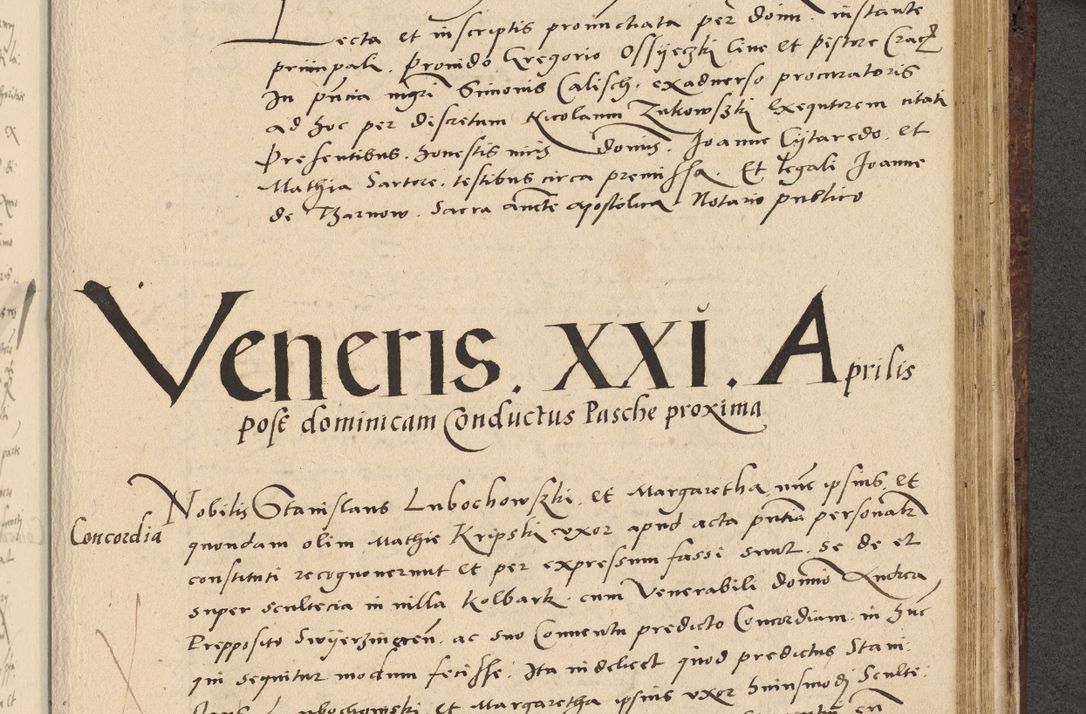 Lecta et in scriptis pronunctiata per dom. instante
principali. Provido Gregorio Ossyeczki Cive et pistore Crac
In pncia mgri Simonis Calisch. ex adverso procuratoris
ad hoc per discretum Nicolaum Zukowski exequtorem citati
Presentibus. honestis viris domis. Joanne Cytaredo. et
Mathia Sartore. testibus circa premissa. Et legali Joanne
de Tharnow. Sacra aucte apostolica Notario publico
Veneris. XXI. Aprilis
post dominicam Conductus Pasche proxima
Concordia
Nobilis Stanislaus Lubochowski. et Margaretha nunc ipsius, et
quondam olim Mathie Kripski uxor apud acta pntia personalr
constituti recognoverunt et per expressum fassi sunt. se de et
super scultecia in villa Kolbark. cum Venerabili domino Andrea
Prepposito Swyerzingren. ac suo Conventu predicto Concordiam. in hunc
qui sequitur modum fecisse. Ita videlicet quod predictus Stani
Lubochowski. et Margaretha ipsius uxor huiusmodi Sculte.